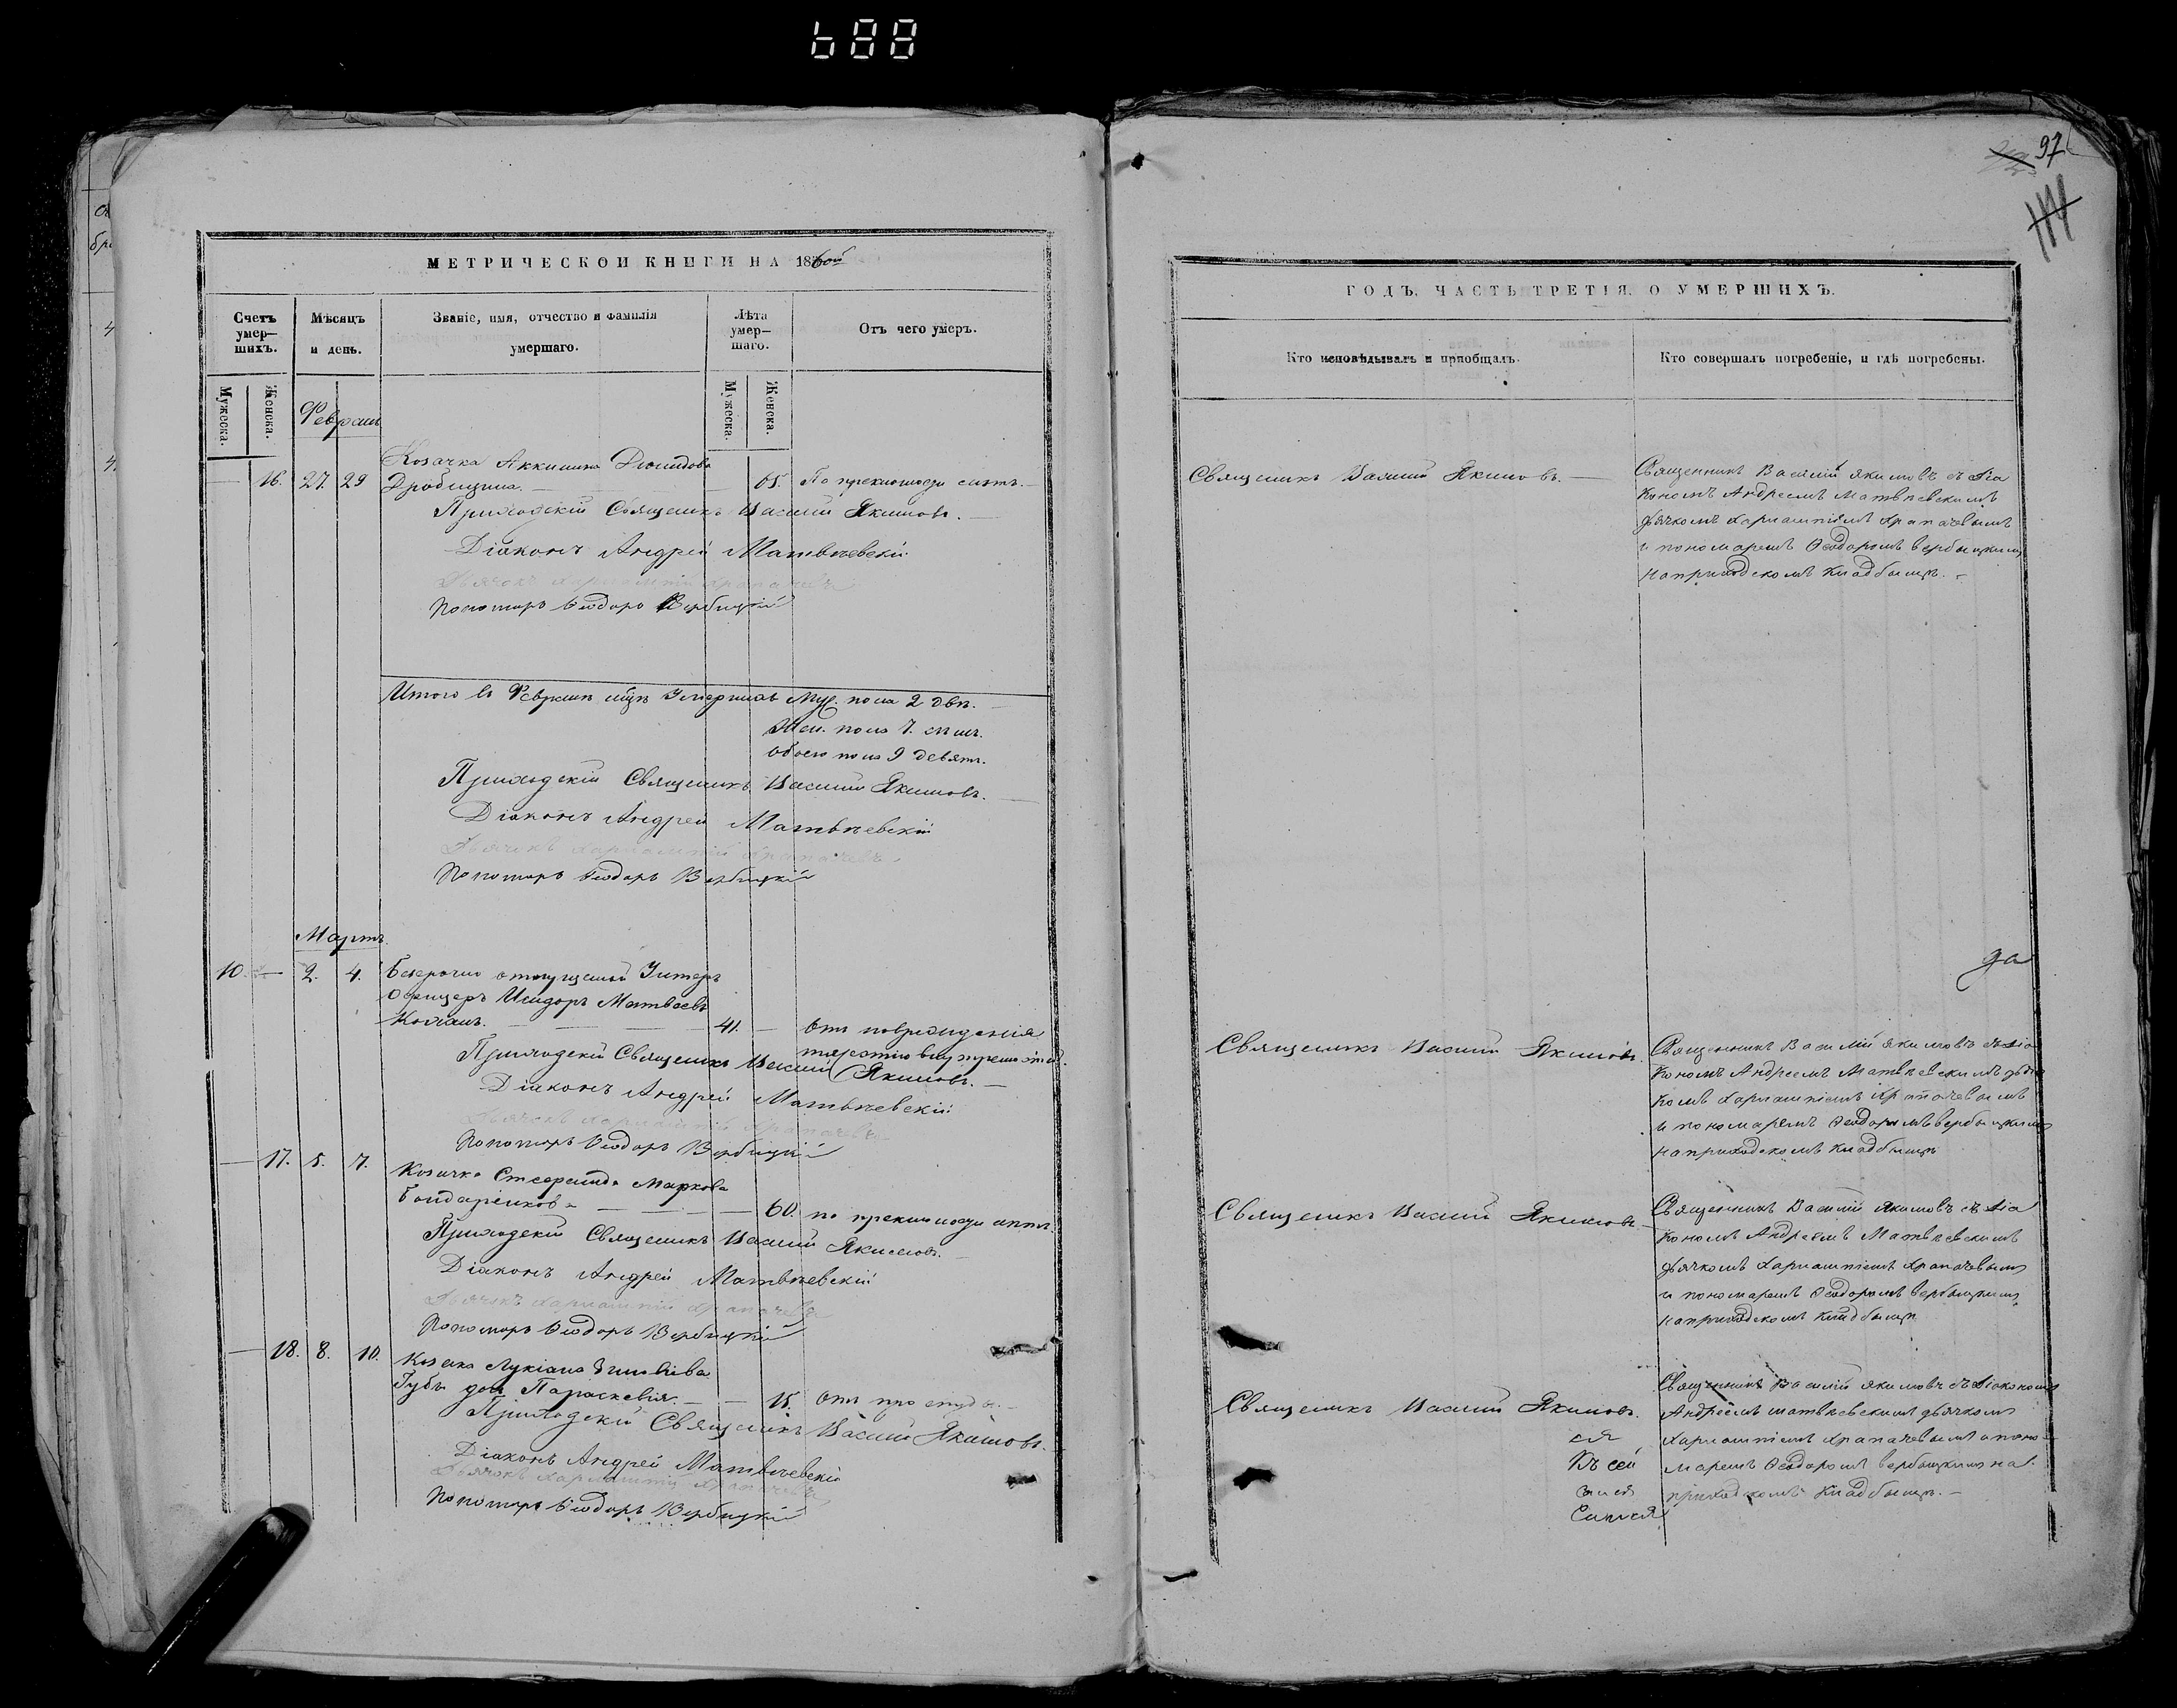 688
97
МЕТРИЧЕСКОЙ КНИГИ НА 186
Счетъ умер-
шихъ.
Мѣсяцъ
и день.
Званіе, имя, отчество и фамилія
умершаго.
Лѣта
умер-
шаго.
Отъ чего умеръ.
Мужеска.
Женска.
Мужеска.
Женска.
Февраль
Козачка Акилина Діомидова
16. 27. 29 Дробицина. 65. По преклоности лѣтъ.
Приходскій Священикъ Василій Якимовъ.
Діаконъ Андрей Матвѣевскій
Дьячокъ Харлампій
Пономарь Ѳеодоръ Вербицкій
Итого въ Февралѣ мцѣ Умершихъ Муж. пола 2 два.
Жен. пола 7. семь.
обоего пола 9 девять.
Приходскій Священикъ Василій Якимовъ.
Діаконъ Андрей Матвѣевскій
Дьячокъ Харлампій
Пономарь Ѳеодоръ Вербицкій
Мартъ
10. 2. 4. Безсрочно отпущеной Унтеръ
Офицеръ Исидоръ Матвѣевъ
41. Отъ поврежденія
Приходскій Священикъ Василій Якимовъ.
Діаконъ Андрей Матвѣевскій
Дьячокъ Харлампій
Пономарь Ѳеодоръ Вербицкій
17. 5. 7. Козачка Стефанида Маркова
Бондаренкова 60. по преклоности лѣтъ.
Приходскій Священикъ Василій Якимовъ.
Діаконъ Андрей Матвѣевскій
Дьячокъ Харлампій
Пономарь Ѳеодоръ Вербицкій
18. 8. 10. Козака Лукіана
Губы дочь Параскевія. 15. Отъ простуды.
Приходскій Священикъ Василій Якимовъ.
Діаконъ Андрей Матвѣевскій
Дьячокъ Харлампій
Пономарь Ѳеодоръ Вербицкій
ГОДЪ, ЧАСТЬ ТРЕТІЯ, О УМЕРШИХЪ.
Кто исповѣдывалъ и пріобщалъ.
Кто совершалъ погребеніе, и гдѣ погребены.
Священикъ Василій Якимовъ.
Священникъ Василій Якимовъ съ діа
кономъ Андреемъ Матвѣевскимъ
дьячкомъ Харлампіемъ
и пономаремъ Ѳеодоромъ Вербицкимъ
на приходскомъ кладбищѣ.
да
Священикъ Василій Якимовъ.
Священникъ Василій Якимовъ съ діа
кономъ Андреемъ Матвѣевскимъ дьяч
комъ Харлампіемъ
и пономаремъ Ѳеодоромъ Вербицкимъ
на приходскомъ кладбищѣ
Священикъ Василій Якимовъ
Священникъ Василій Якимовъ съ діа
кономъ Андреемъ Матвѣевскимъ
дьячкомъ Харлампіемъ
и пономаремъ Ѳеодоромъ Вербицкимъ
на приходскомъ кладбищѣ
Священикъ Василій Якимовъ.
Священникъ Василій Якимовъ съ діакономъ
Андреемъ Матвѣевскимъ дьячкомъ
Харлампіемъ и поно
маремъ Ѳеодоромъ Вербицкимъ на
приходскомъ кладбищѣ.
ся
Къ сей